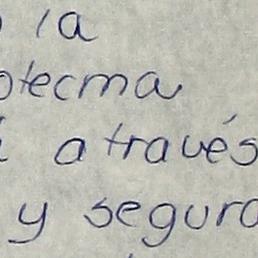 la
otecma
a través
y segura